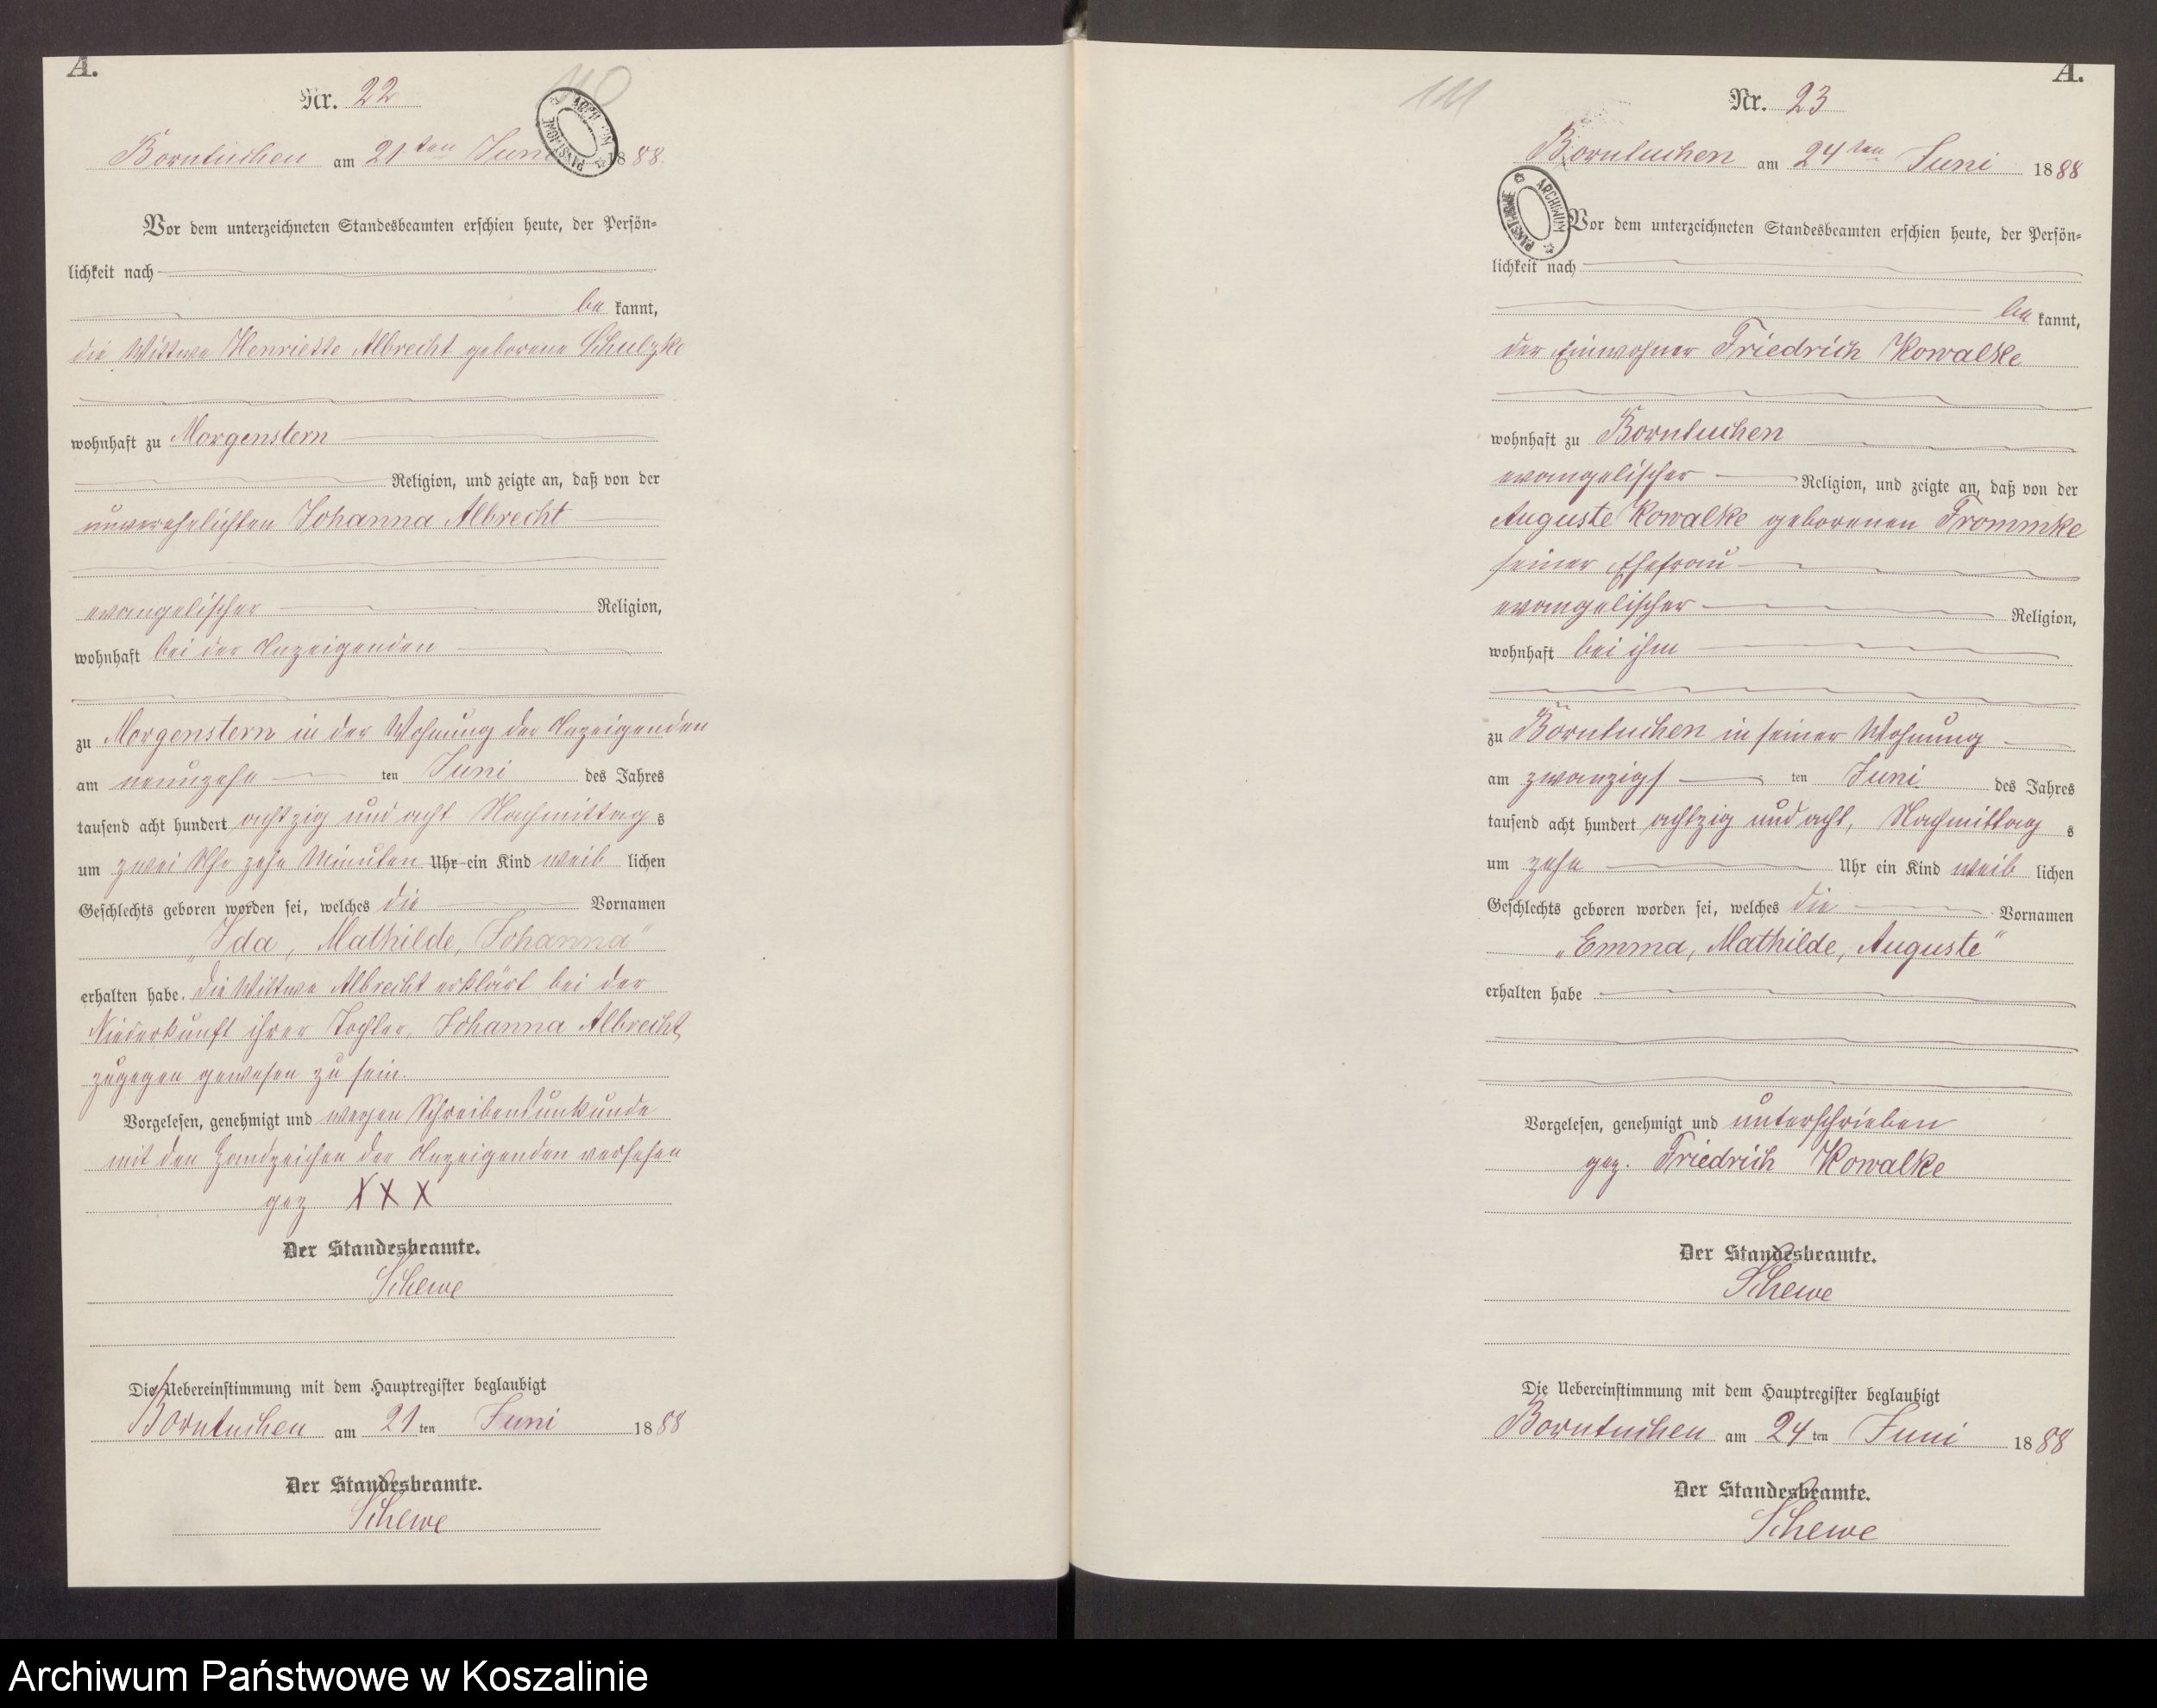 A.
110
Nr. 22
Borntuchen am 21ten Juni 1888.
Vor dem unterzeichneten Standesbeamten erschien heute, der Persön=
lichkeit nach
be kannt,
die Wittwe Henriette Albrecht geborene Schulzke
wohnhaft zu Morgenstern
Religion, und zeigte an, daß von der
unverehelichten Johanna Albrecht
evangelischer Religion,
wohnhaft bei der Anzeigenden
zu Morgenstern in der Wohnung der Anzeigenden
am neunzehn ten Juni des Jahres
tausend acht hundert achtzig und acht Nachmittag s
um zwei Uhr zehn Minuten Uhr ein Kind weib lichen
Geschlechts geboren worden sei, welches die Vornamen
„Ida, Mathilde, Johanna“
erhalten habe. Die Wittwe Albrecht erklärt bei der
Niederkunft ihrer Tochter, Johanna Albrecht,
zugegen gewesen zu sein.
Vorgelesen, genehmigt und wegen Schreibensunkunde
mit den Handzeichen der Anzeigenden versehen
gez XXX
Der Standesbeamte.
Schewe
Die Uebereinstimmung mit dem Hauptregister beglaubigt
Borntuchen am 21 ten Juni 1888
Der Standesbeamte.
Schewe
A.
111
Nr. 23
Borntuchen am 24ten Juni 1888
ARCHIWUM PAŃSTWOWE
Vor dem unterzeichneten Standesbeamten erschien heute, der Persön=
lichkeit nach
be kannt,
der Einwohner Friedrich Kowalke
wohnhaft zu Borntuchen
evangelischer Religion, und zeigte an, daß von der
Auguste Kowalke geborenen Frommke
seiner Ehefrau
evangelischer Religion,
wohnhaft bei ihm
zu Borntuchen in seiner Wohnung
am zwanzigs ten Juni des Jahres
tausend acht hundert achtzig und acht, Nachmittag s
um zehn Uhr ein Kind weib lichen
Geschlechts geboren worden sei, welches die Vornamen
„Emma, Mathilde, Auguste“
erhalten habe
Vorgelesen, genehmigt und unterschrieben
gez. Friedrich Kowalke
Der Standesbeamte.
Schewe
Die Uebereinstimmung mit dem Hauptregister beglaubigt
Borntuchen am 24 ten Juni 1888
Der Standesbeamte.
Schewe
Archiwum Państwowe w Koszalinie